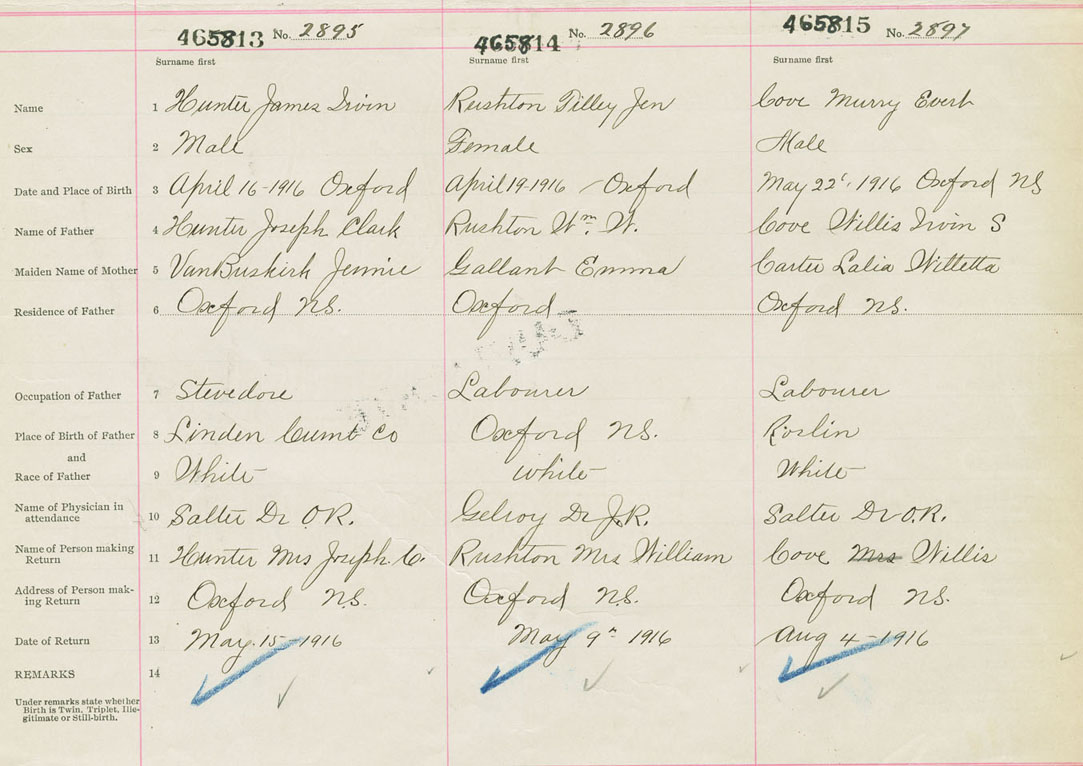 465813 No. 2895
465814 No. 2896
465815 No. 2897
Surname first Surname first Surname first
Name 1 Hunter James Irvin Rushton Tilley Jen Cove Murry Evert
Sex 2 Male Female Male
Date and Place of Birth 3 April 16-1916 Oxford April 19-1916 - Oxford May 22d, 1916 Oxford NS
Name of Father 4 Hunter Joseph Clark Rushton Wm. W. Cove Willis Irvin S
Maiden Name of Mother 5 VanBuskirk Jennie Gallant Emma Carter Lalia Willetta
Residence of Father 6 Oxford NS. Oxford Oxford NS.
Occupation of Father 7 Stevedore Labourer Labourer
Place of Birth of Father 8 Linden Cumb Co Oxford NS. Roslin
and
Race of Father 9 White White White
Name of Physician in
attendance 10 Salter Dr O.R. Gelroy Dr J.R. Salter Dr O.R.
Name of Person making
Return 11 Hunter Mrs Joseph C. Rushton Mrs William Cove Mrs Willis
Address of Person mak-
ing Return 12 Oxford NS. Oxford NS. Oxford NS.
Date of Return 13 May. 15-1916 May 9th 1916 Aug 4-1916
REMARKS 14
Under remarks state whether
Birth is Twin, Triplet, Ille-
gitimate or Still-birth.